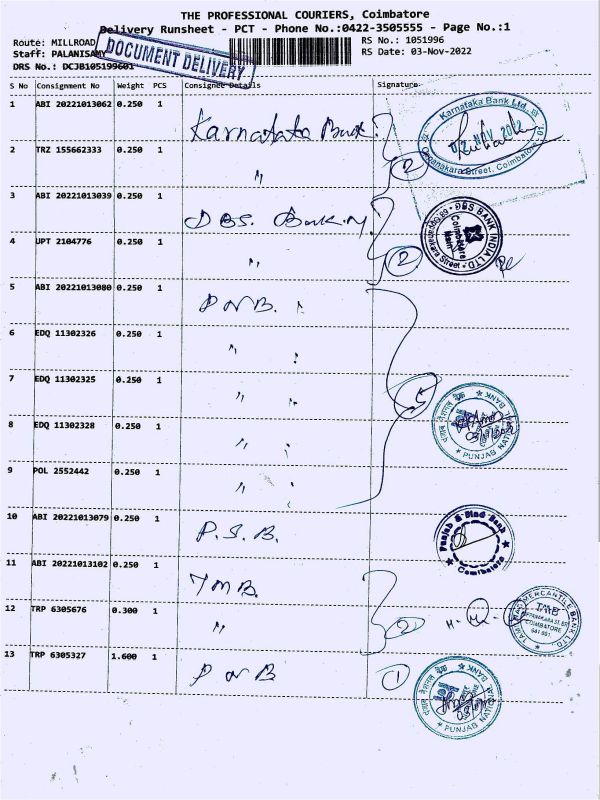 THE PROFESSIONAL COURIERS, Coimbatore
Delivery Runsheet - PCT - Phone No.:0422-3505555 - Page No.:1
Route: MILLROAD
RS No.: 1051996
Staff: PALANISAMY
RS Date: 03-Nov-2022
DRS No.: DCJB105199601
DOCUMENT DELIVERY
S No Consignment No Weight PCS Consignee Details Signature
1 ABI 20221013062 0.250 1 Karnataka Bank
Karnataka Bank Ltd.
Oppanakara Street, Coimbatore
2 TRZ 155662333 0.250 1 "
2
3 ABI 20221013039 0.250 1 DBS. Bank
DBS BANK INDIA LTD
Coimbatore
Main
4 UPT 2104776 0.250 1 "
2
5 ABI 20221013080 0.250 1 P N B.
6 EDQ 11302326 0.250 1 "
7 EDQ 11302325 0.250 1 "
5
8 EDQ 11302328 0.250 1 "
PUNJAB NATIONAL BANK
9 POL 2552442 0.250 1 "
10 ABI 20221013079 0.250 1 P. S. B.
Punjab & Sind Bank
Coimbatore
11 ABI 20221013102 0.250 1 TMB.
12 TRP 6305676 0.300 1 "
2
TAMILNAD MERCANTILE BANK LTD
TMB
COIMBATORE
641 001
13 TRP 6305327 1.600 1 P N B
1
PUNJAB NATIONAL